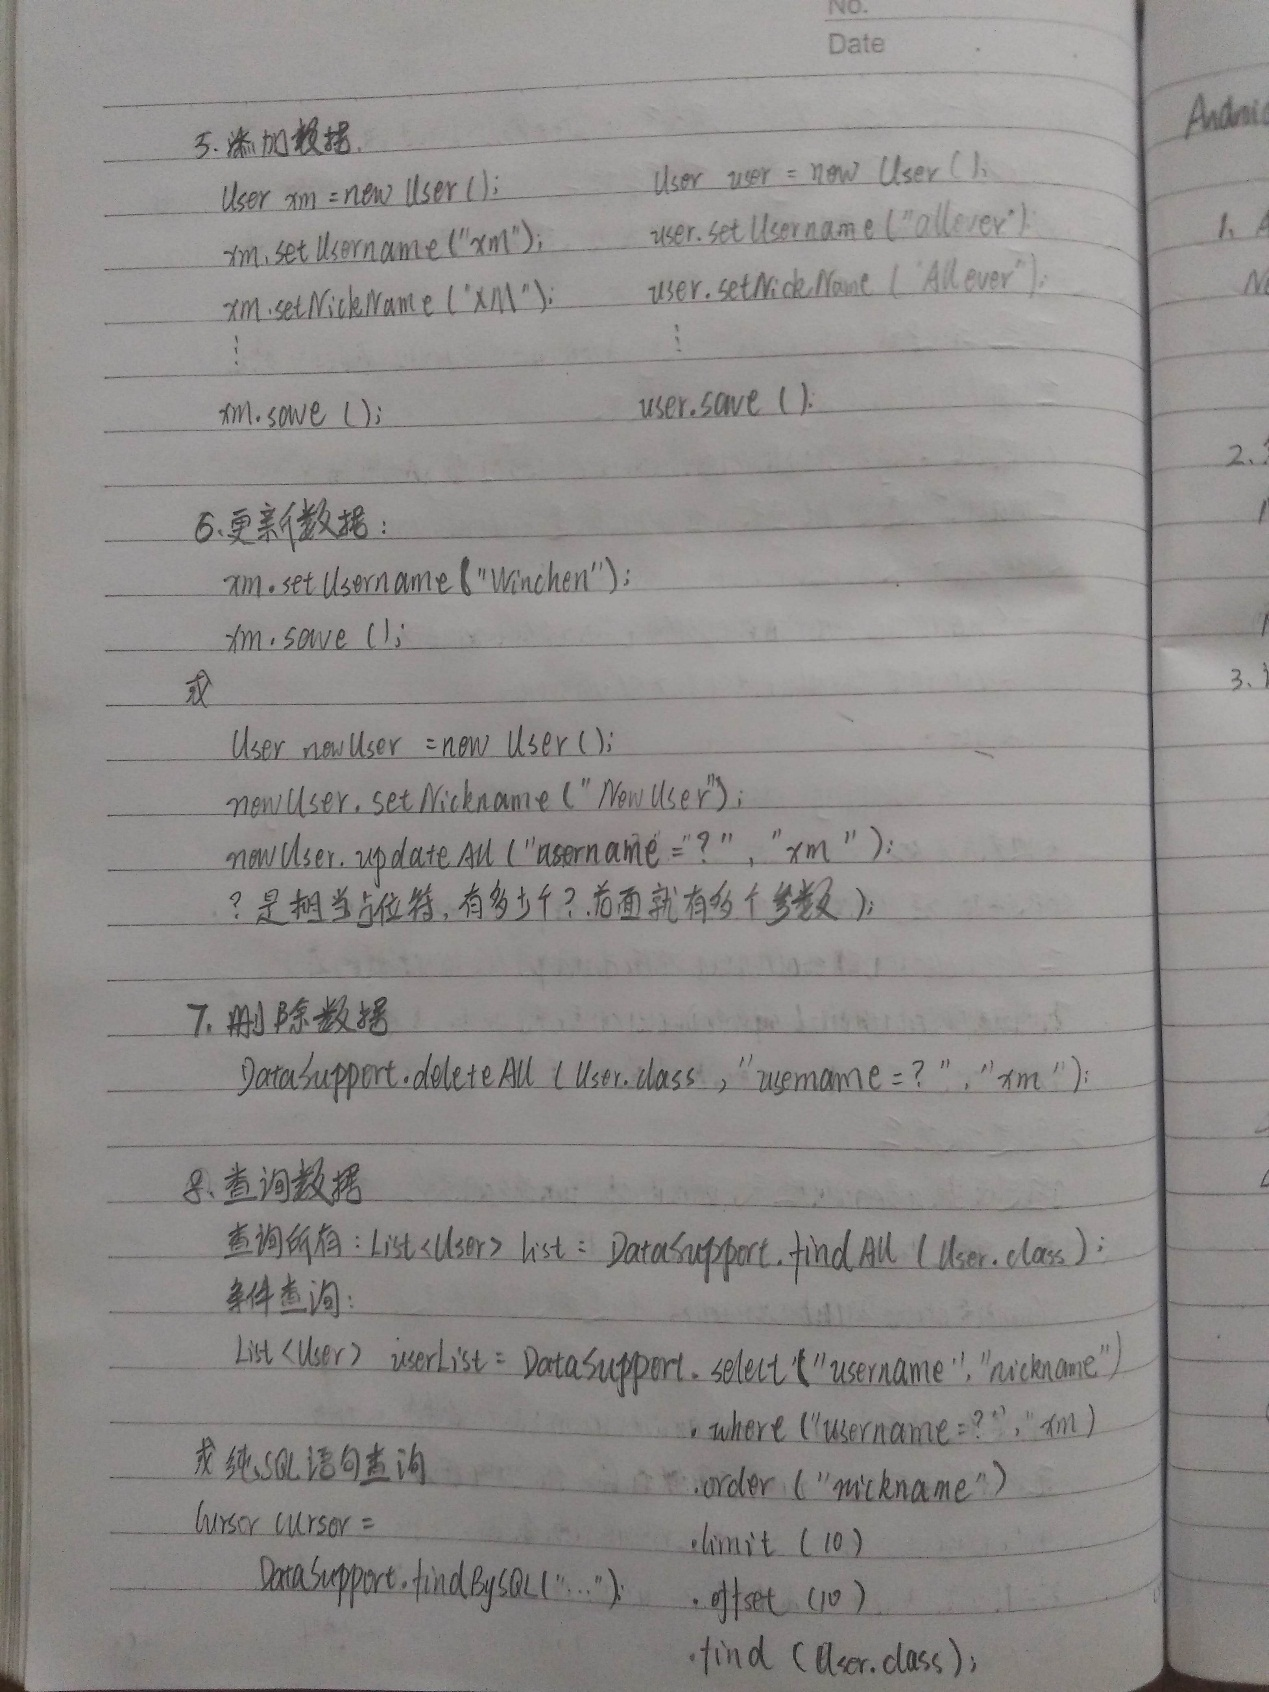 No.
Date
5.添加数据.
User xm = new User();
xm.setUsername("xm");
xm.setNickName("XM");
⋮
xm.save();
User user = new User();
user.setUsername("allever");
user.setNickName("Allever");
⋮
user.save();
6.更新数据:
xm.setUsername("Winchen");
xm.save();
或
User newUser = new User();
newUser.setNickname("NewUser");
newUser.updateAll("username = ?", "xm");
?是相当占位符,有多少个?.后面就有多个参数);
7.删除数据
DataSupport.deleteAll(User.class, "username = ?", "xm");
8.查询数据
查询所有: List<User> list = DataSupport.findAll(User.class);
条件查询:
List<User> userList = DataSupport.select("username","nickname")
.where("username=?","xm)
.order("nickname")
.limit(10)
.offset(10)
.find(User.class);
或纯SQL语句查询
Cursor cursor =
DataSupport.findBySQL("...");
Android
1. A
2.
3.